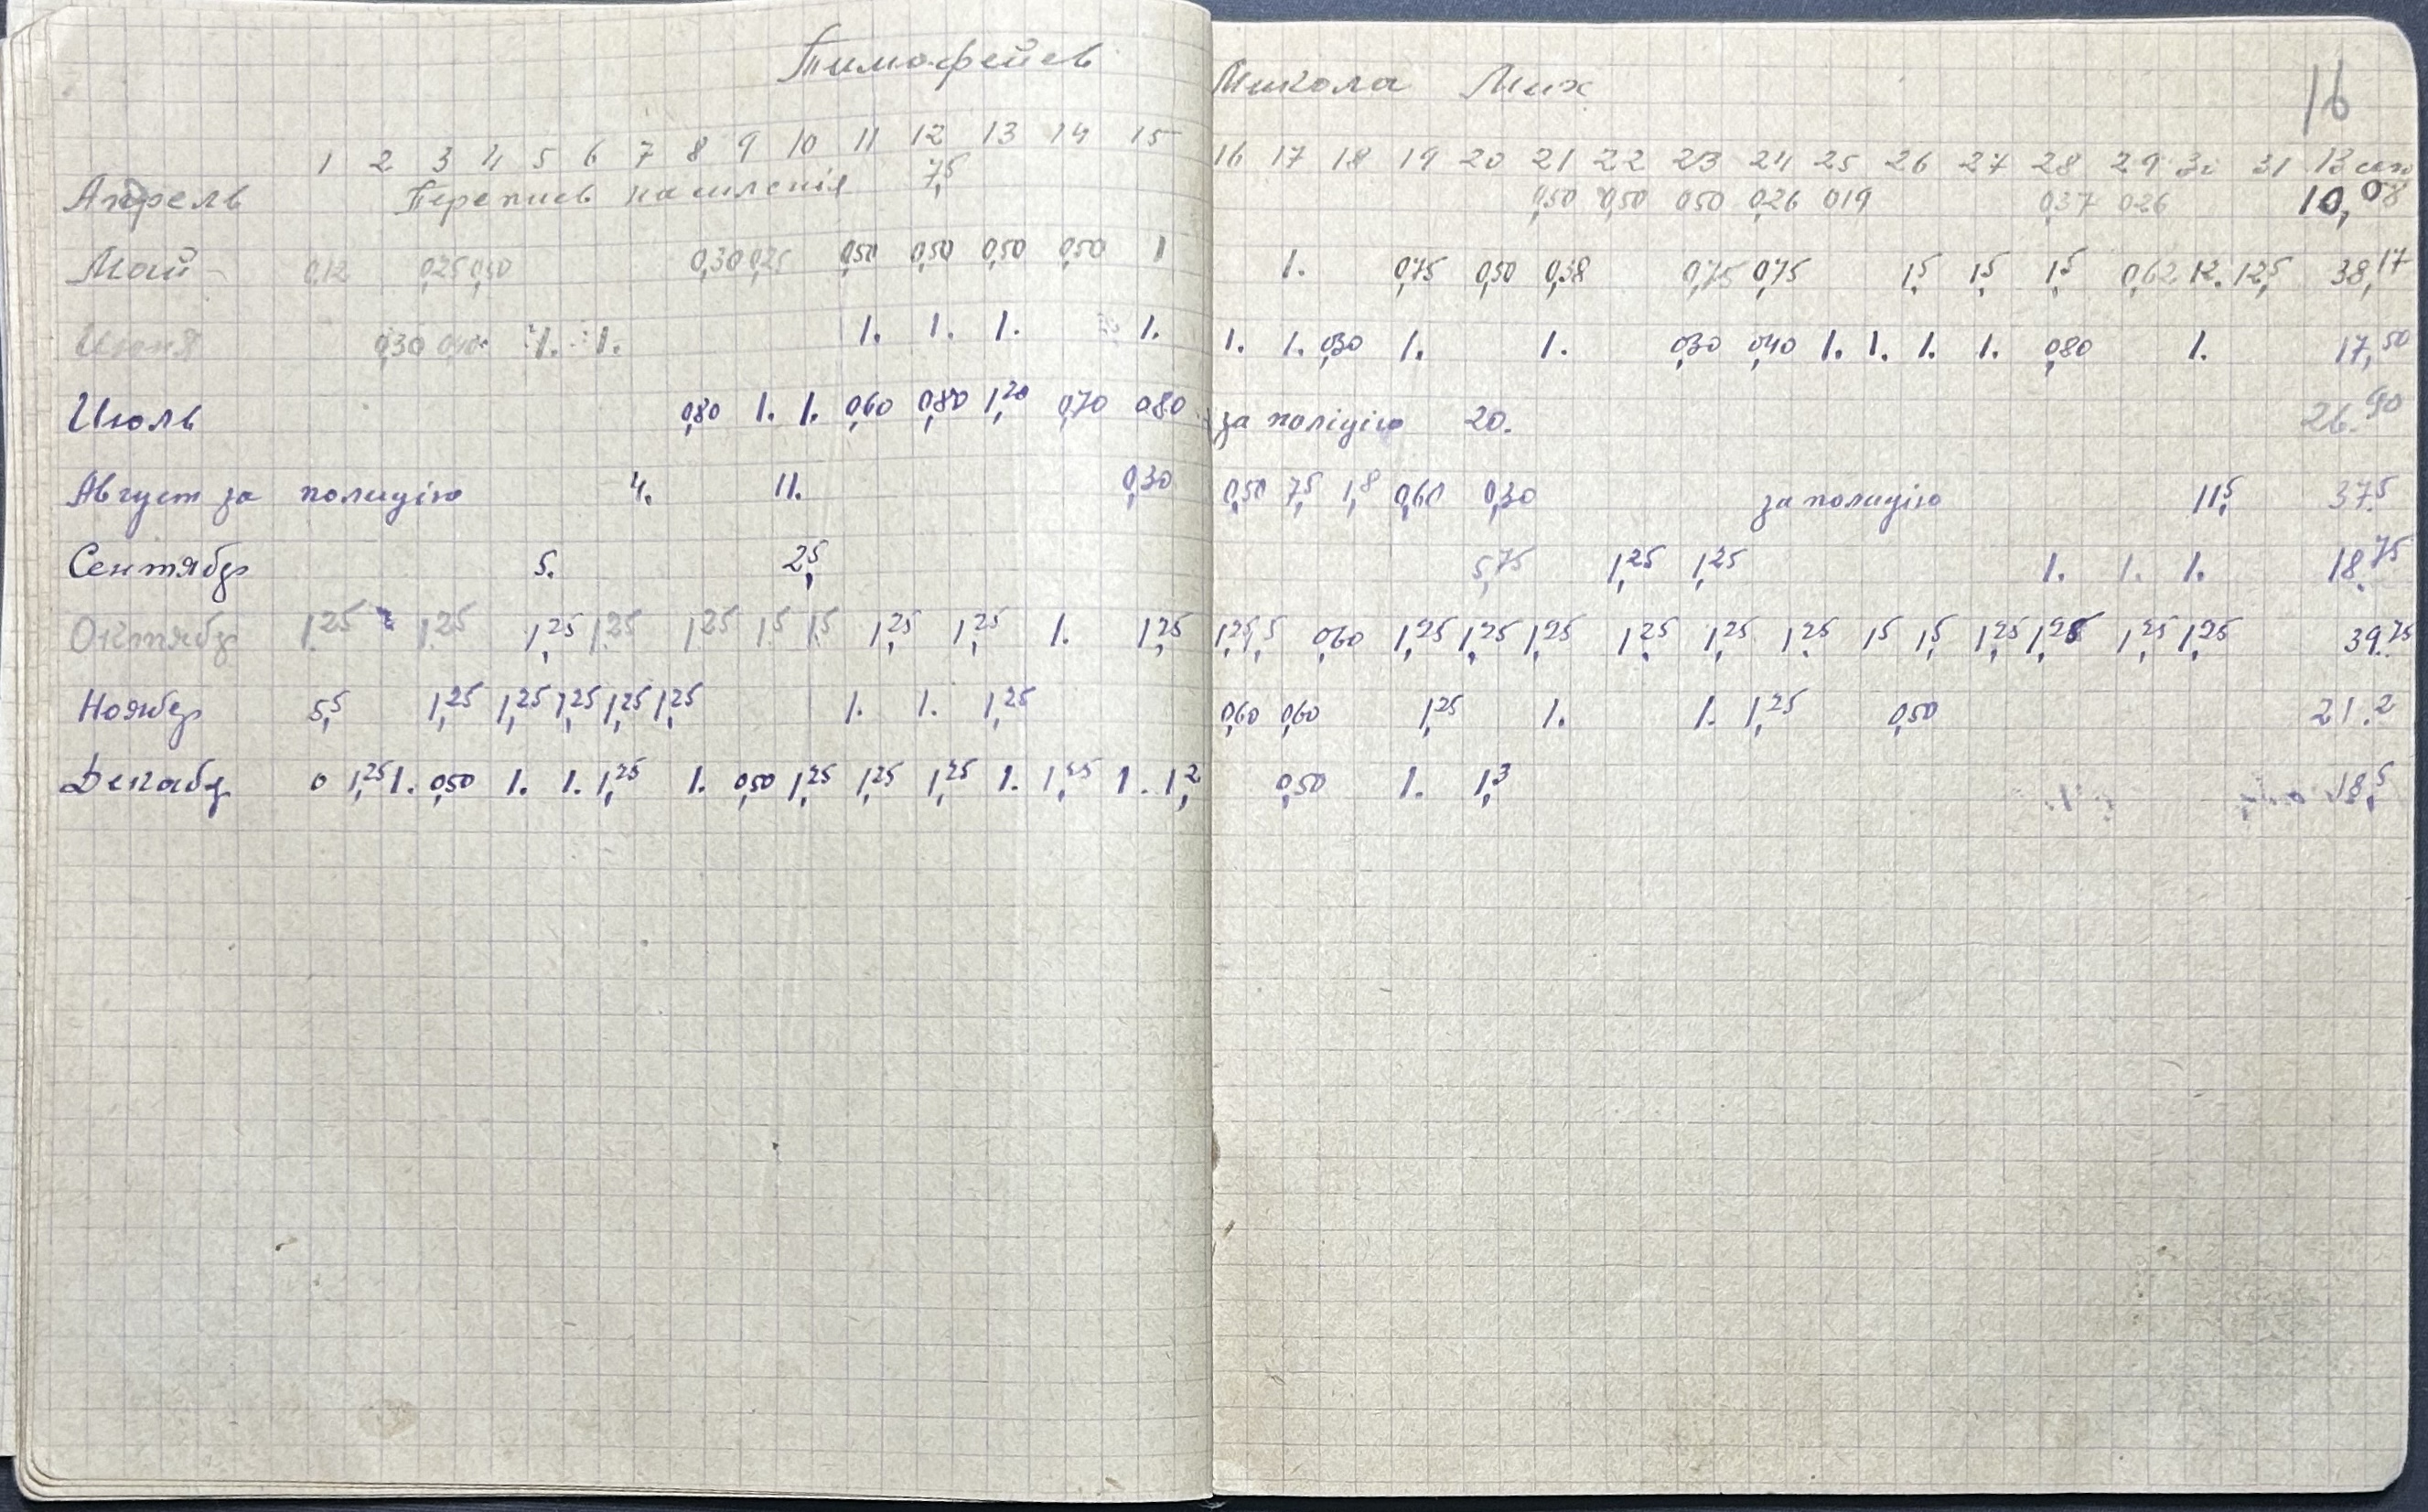 Тимофеев Микола Мих
16
1 2 3 4 5 6 7 8 9 10 11 12 13 14 15 16 17 18 19 20 21 22 23 24 25 26 27 28 29 30 31 Всего
Апрель Перепись населенія 7,5 0,50 0,50 0,50 0,26 0,19 0,37 0,26 10,08
Май 0,12 0,25 0,50 0,30 0,25 0,50 0,50 0,50 0,50 1 1. 0,75 0,50 0,38 0,75 0,75 1,5 1,5 1,5 0,62 12. 12,5 38,17
Июня 0,30 0,40 1. 1. 1. 1. 1. 1. 1. 1. 0,30 1. 1. 0,30 0,40 1. 1. 1. 1. 0,80 1. 17,50
Июль 0,80 1. 1. 0,60 0,80 1,20 0,70 0,80 за поліцію 20. 26.90
Август за полицію 4. 11. 0,30 0,50 7,5 1,8 0,60 0,30 за полицію 11,5 37.5
Сентябр 5. 2,5 5,75 1,25 1,25 1. 1. 1. 18.75
Октябр 1.25 1.25 1,25 1.25 1,25 1,5 1,5 1,25 1,25 1. 1,25 1,25 1,5 0,60 1,25 1,25 1,25 1,25 1,25 1,25 1,5 1,5 1,25 1,25 1,25 1,25 39.25
Ноябр 5,5 1,25 1,25 1,25 1,25 1,25 1. 1. 1,25 0,60 0,60 1,25 1. 1. 1,25 0,50 21.2
Декабр 0 1,25 1. 0,50 1. 1. 1,25 1. 0,50 1,25 1,25 1,25 1. 1,25 1. 1,2 0,50 1. 1,3 18,5